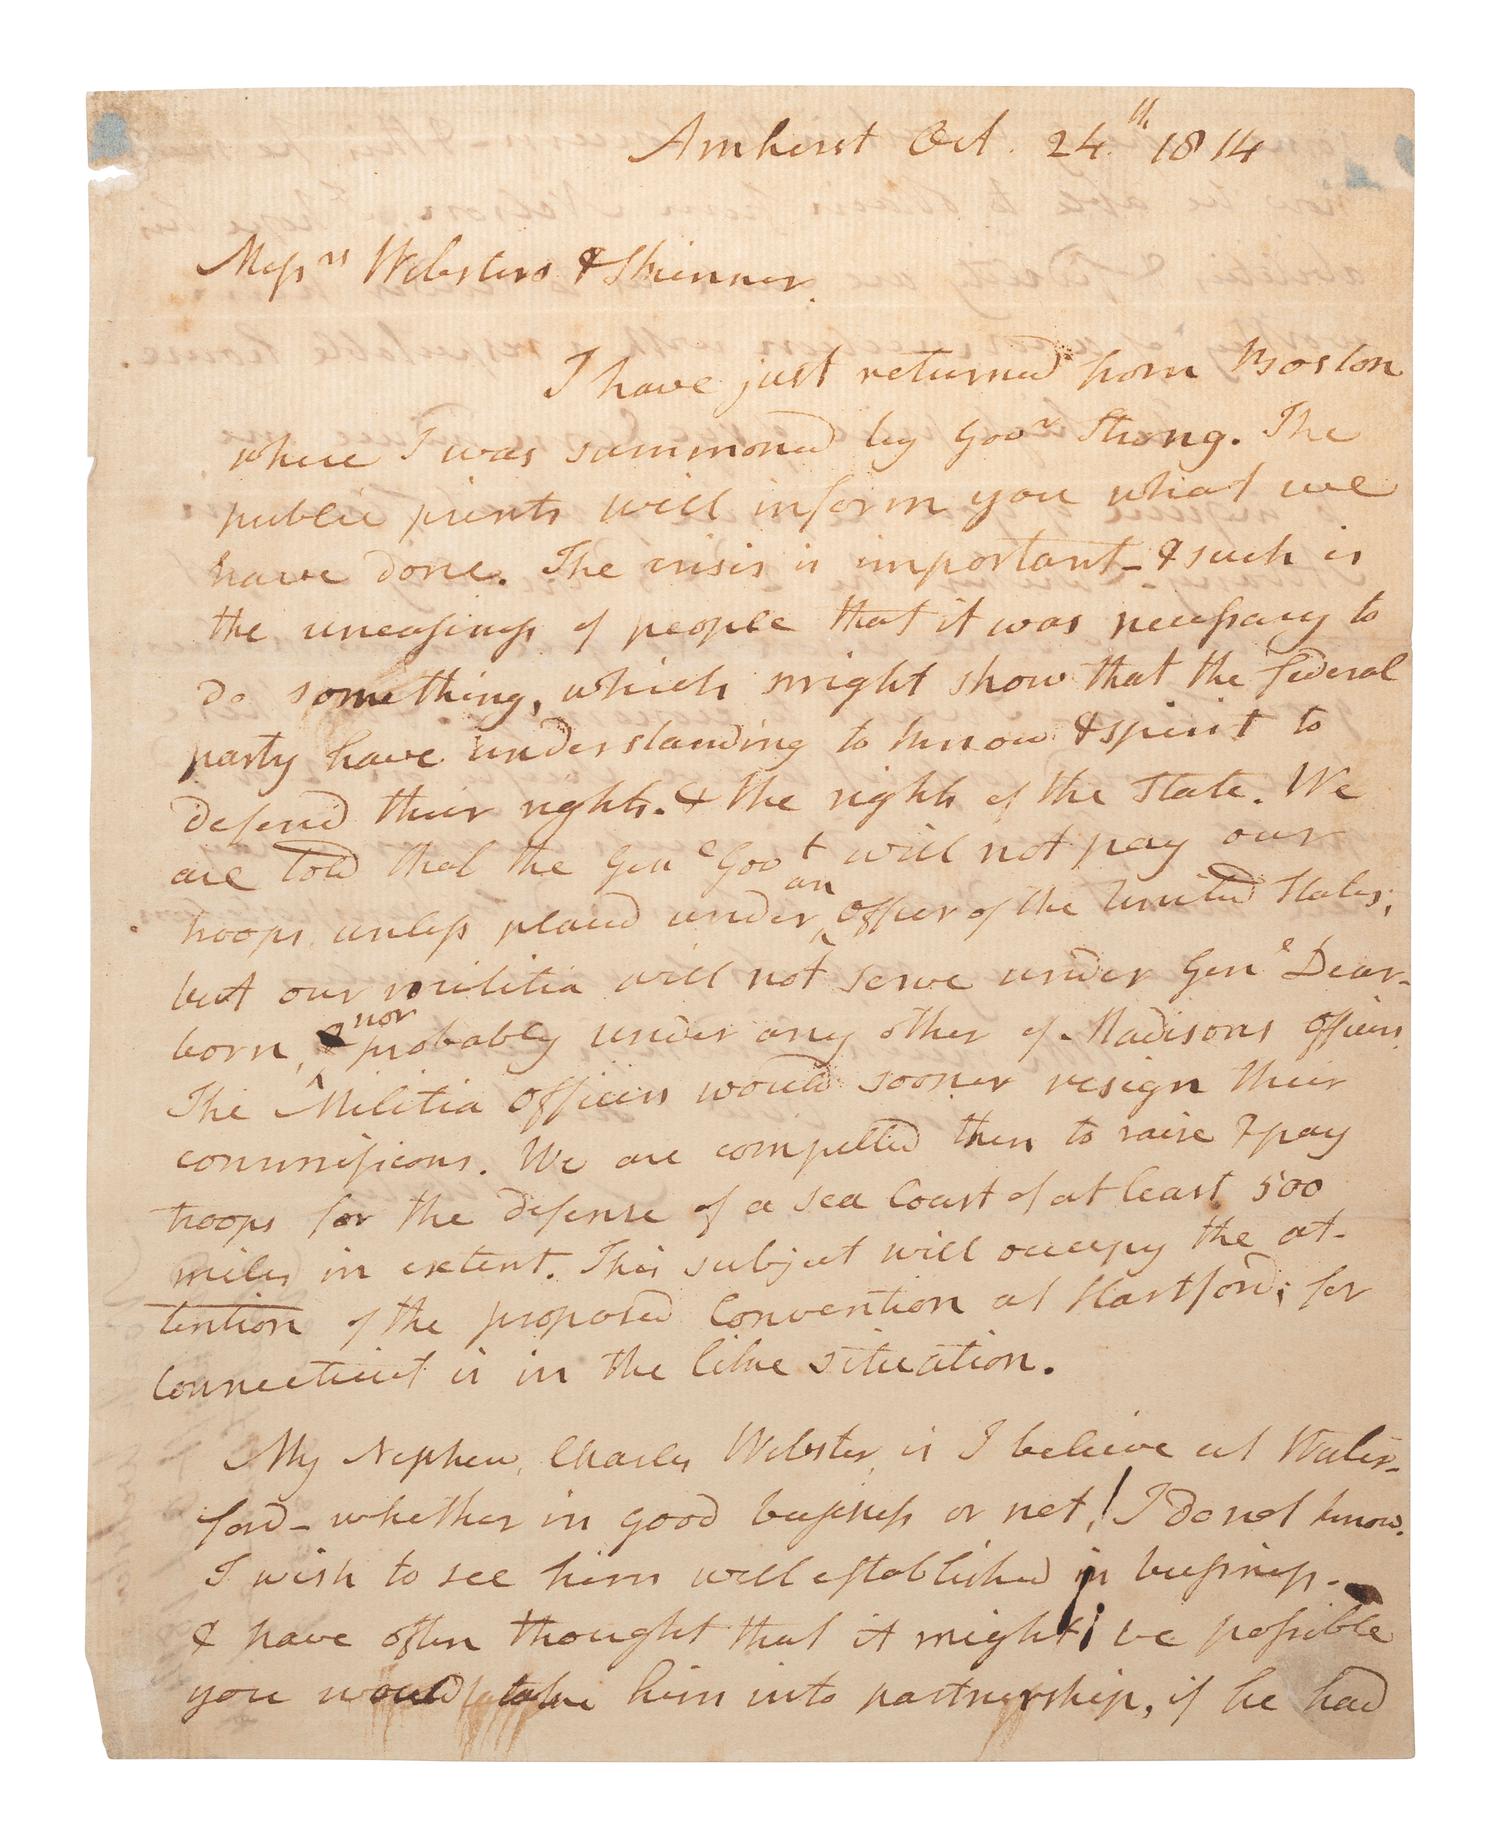 Amherst Oct. 24.th 1814
Messrs Websters & Skinner.
I have just returned from Boston
where I was summoned by Govr Strong. The
public prints will inform you what we
have done. The crisis is important - & such is
the uneasiness of people that it was necessary to
do something, which might show that the federal
party have understanding to know & spirit to
defend their rights. & the rights of the State. We
are told that the Genl Govt will not pay our
troops unless placed under an officer of the United States;
but our militia will not serve under Genl Dear-
born, nor probably under any other of Madisons officers.
The Militia officers would sooner resign their
commissions. We are compelled then to raise & pay
troops for the defense of a sea Coast of at least 500
miles in extent. This subject will occupy the at-
tention of the proposed Convention at Hartford; for
Connecticut is in the like situation.
My Nephew, Charles Webster, is I believe at Water-
ford - whether in good business or not, I do not know.
I wish to see him well established in business.
& have often thought that it might be possible
you would take him into partnership, if he had